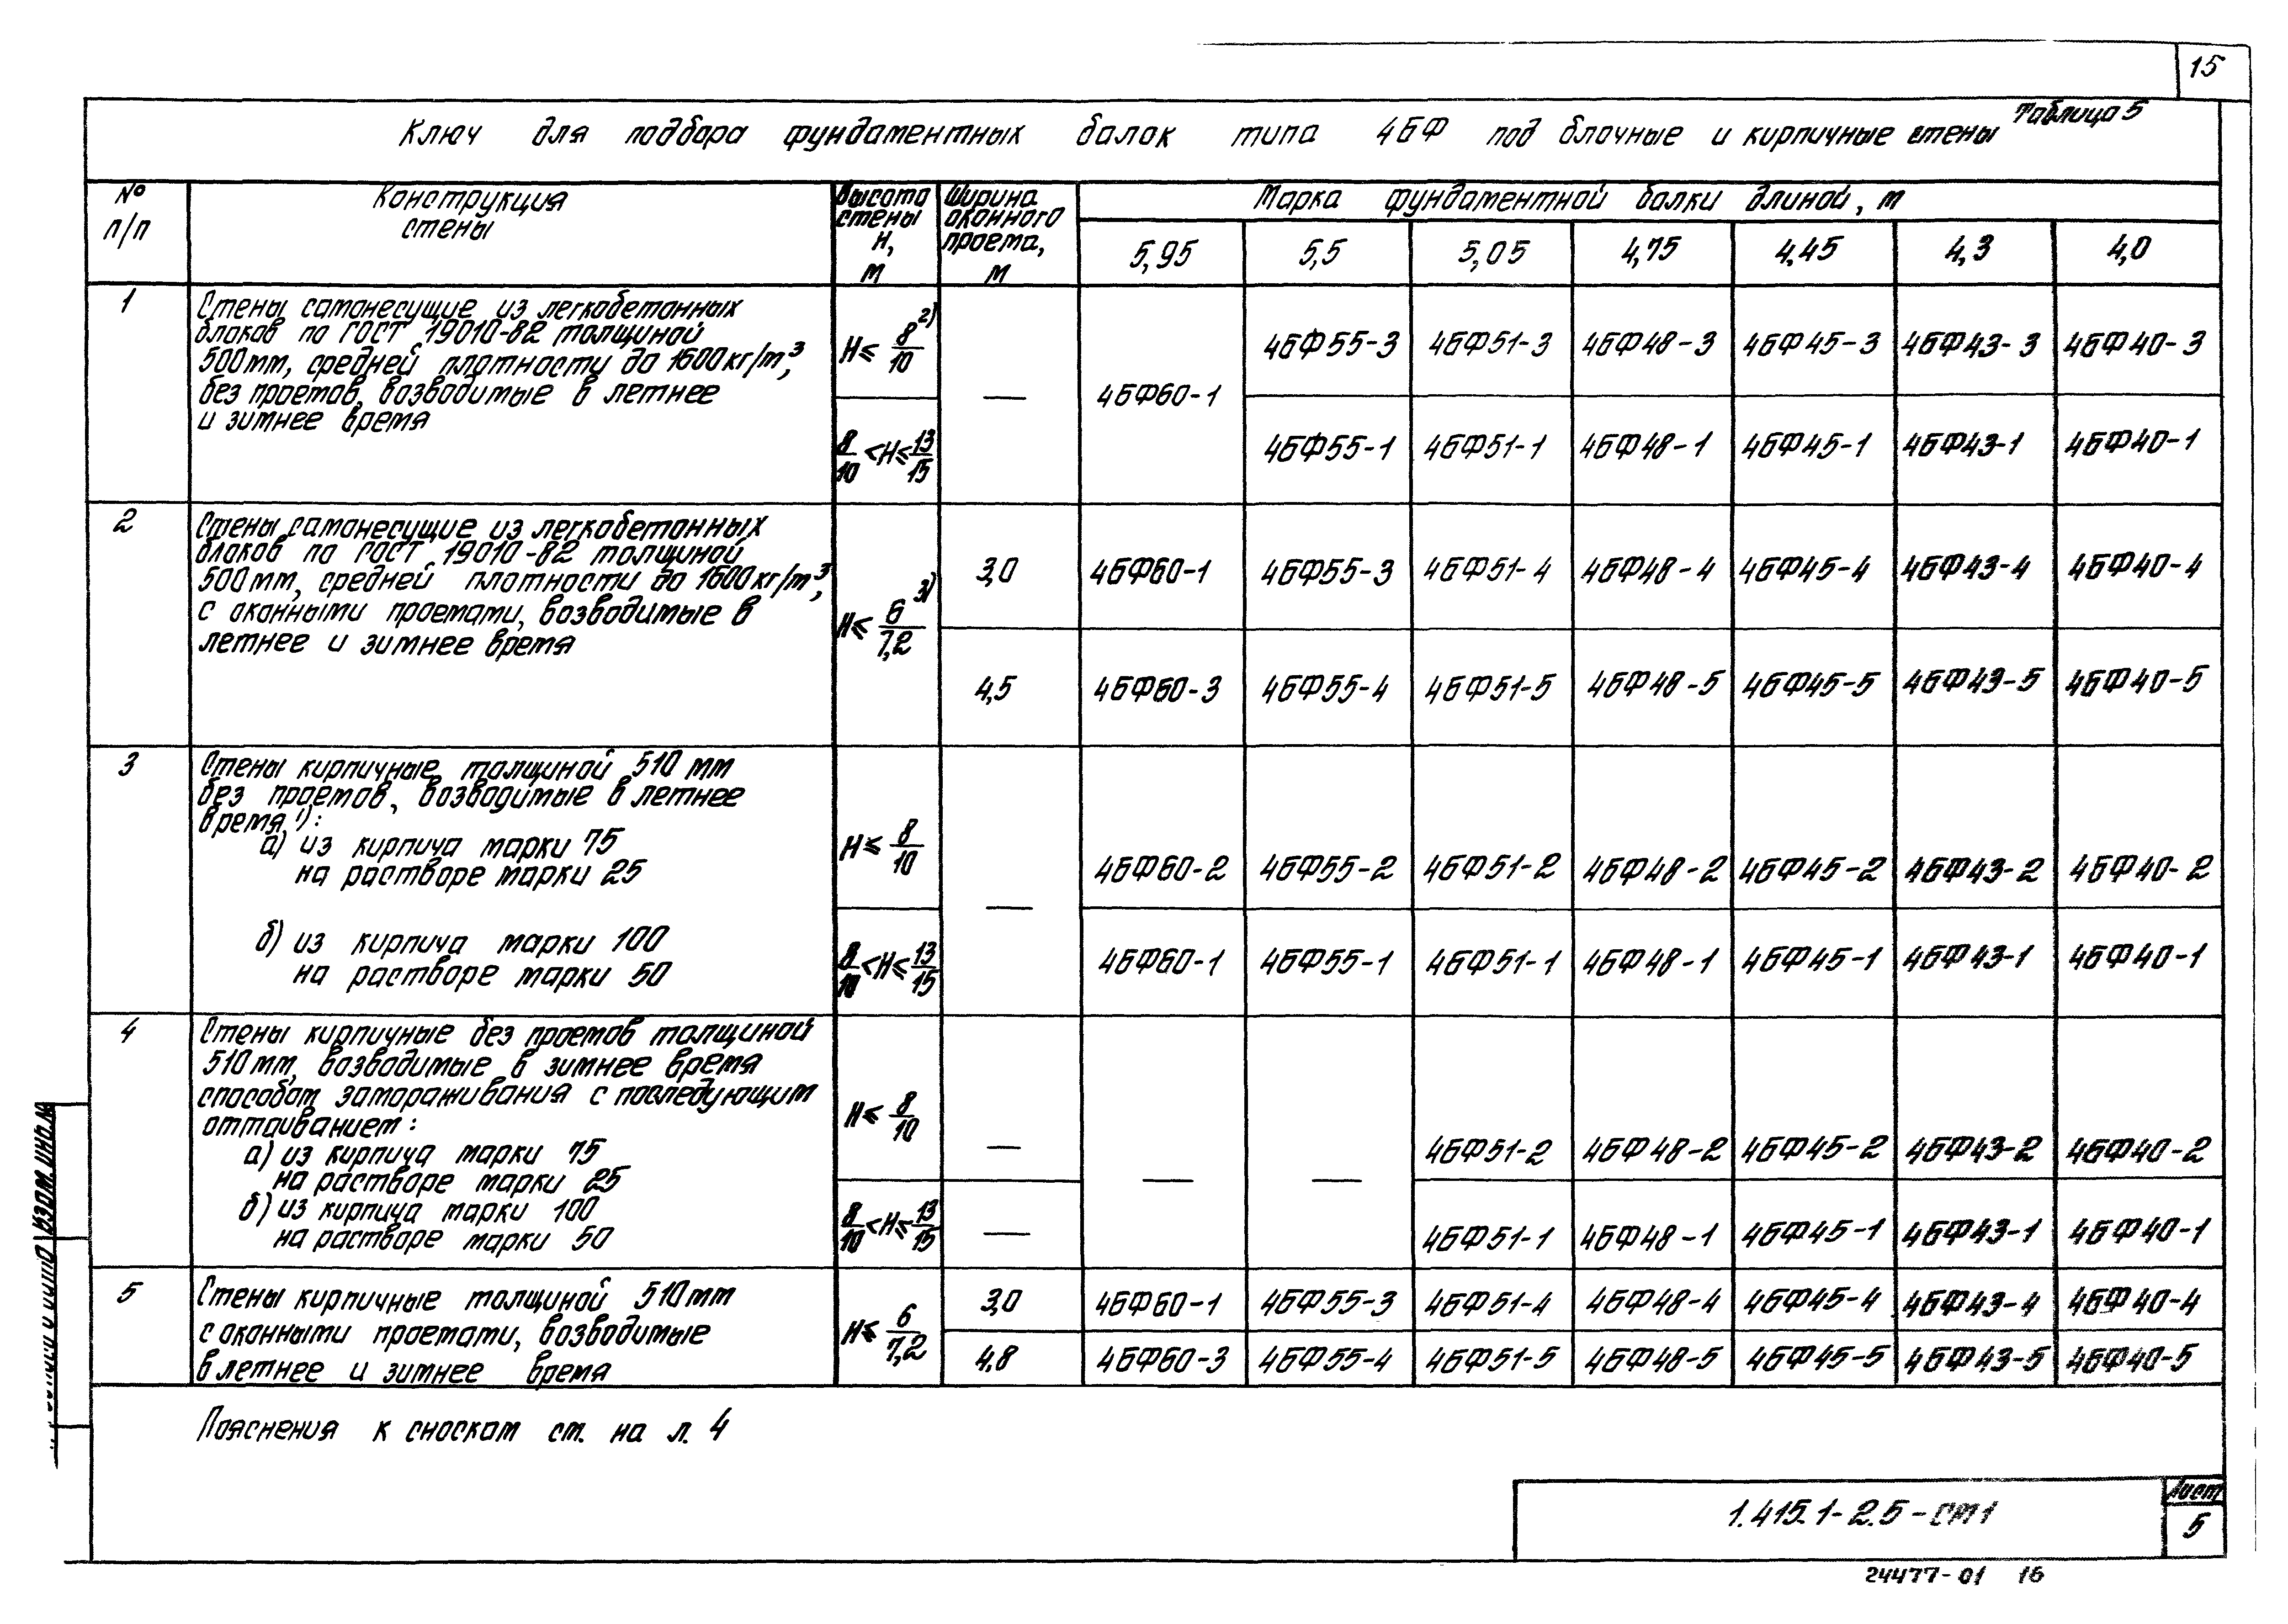 15
Таблица 5
Ключ для подбора фундаментных балок типа 4БФ под блочные и кирпичные стены
№ п/п
Конструкция стены
Высота стены H, м
Ширина оконного проема, м
Марка фундаментной балки длиной, м
5,95 5,5 5,05 4,75 4,45 4,3 4,0
1
Стены самонесущие из легкобетонных
блоков по ГОСТ 19010-82 толщиной
500мм, средней плотности до 1600кг/м³,
без проемов, возводимые в летнее
и зимнее время
H≤ 8/10 2)
—
4БФ60-1
4БФ55-3 4БФ51-3 4БФ48-3 4БФ45-3 4БФ43-3 4БФ40-3
8/10 <H≤ 13/15
4БФ55-1 4БФ51-1 4БФ48-1 4БФ45-1 4БФ43-1 4БФ40-1
2
Стены самонесущие из легкобетонных
блоков по ГОСТ 19010-82 толщиной
500мм, средней плотности до 1600кг/м³,
с оконными проемами, возводимые в
летнее и зимнее время
H≤ 6/7,2 3)
3,0 4БФ60-1 4БФ55-3 4БФ51-4 4БФ48-4 4БФ45-4 4БФ43-4 4БФ40-4
4,5 4БФ60-3 4БФ55-4 4БФ51-5 4БФ48-5 4БФ45-5 4БФ43-5 4БФ40-5
3
Стены кирпичные толщиной 510 мм
без проемов, возводимые в летнее
время 1):
а) из кирпича марки 75
на растворе марки 25
H≤ 8/10
—
4БФ60-2 4БФ55-2 4БФ51-2 4БФ48-2 4БФ45-2 4БФ43-2 4БФ40-2
б) из кирпича марки 100
на растворе марки 50
8/10 <H≤ 13/15
4БФ60-1 4БФ55-1 4БФ51-1 4БФ48-1 4БФ45-1 4БФ43-1 4БФ40-1
4
Стены кирпичные без проемов толщиной
510мм, возводимые в зимнее время
способом замораживания с последующим
оттаиванием:
а) из кирпича марки 75
на растворе марки 25
H≤ 8/10
— — —
4БФ51-2 4БФ48-2 4БФ45-2 4БФ43-2 4БФ40-2
б) из кирпича марки 100
на растворе марки 50
8/10 <H≤ 13/15
—
4БФ51-1 4БФ48-1 4БФ45-1 4БФ43-1 4БФ40-1
5
Стены кирпичные толщиной 510мм
с оконными проемами, возводимые
в летнее и зимнее время
H≤ 6/7,2
3,0 4БФ60-1 4БФ55-3 4БФ51-4 4БФ48-4 4БФ45-4 4БФ43-4 4БФ40-4
4,8 4БФ60-3 4БФ55-4 4БФ51-5 4БФ48-5 4БФ45-5 4БФ43-5 4БФ40-5
Пояснения к сноскам см. на л. 4
1.415.1-2.5-СМ1
Лист
5
24477-01 16